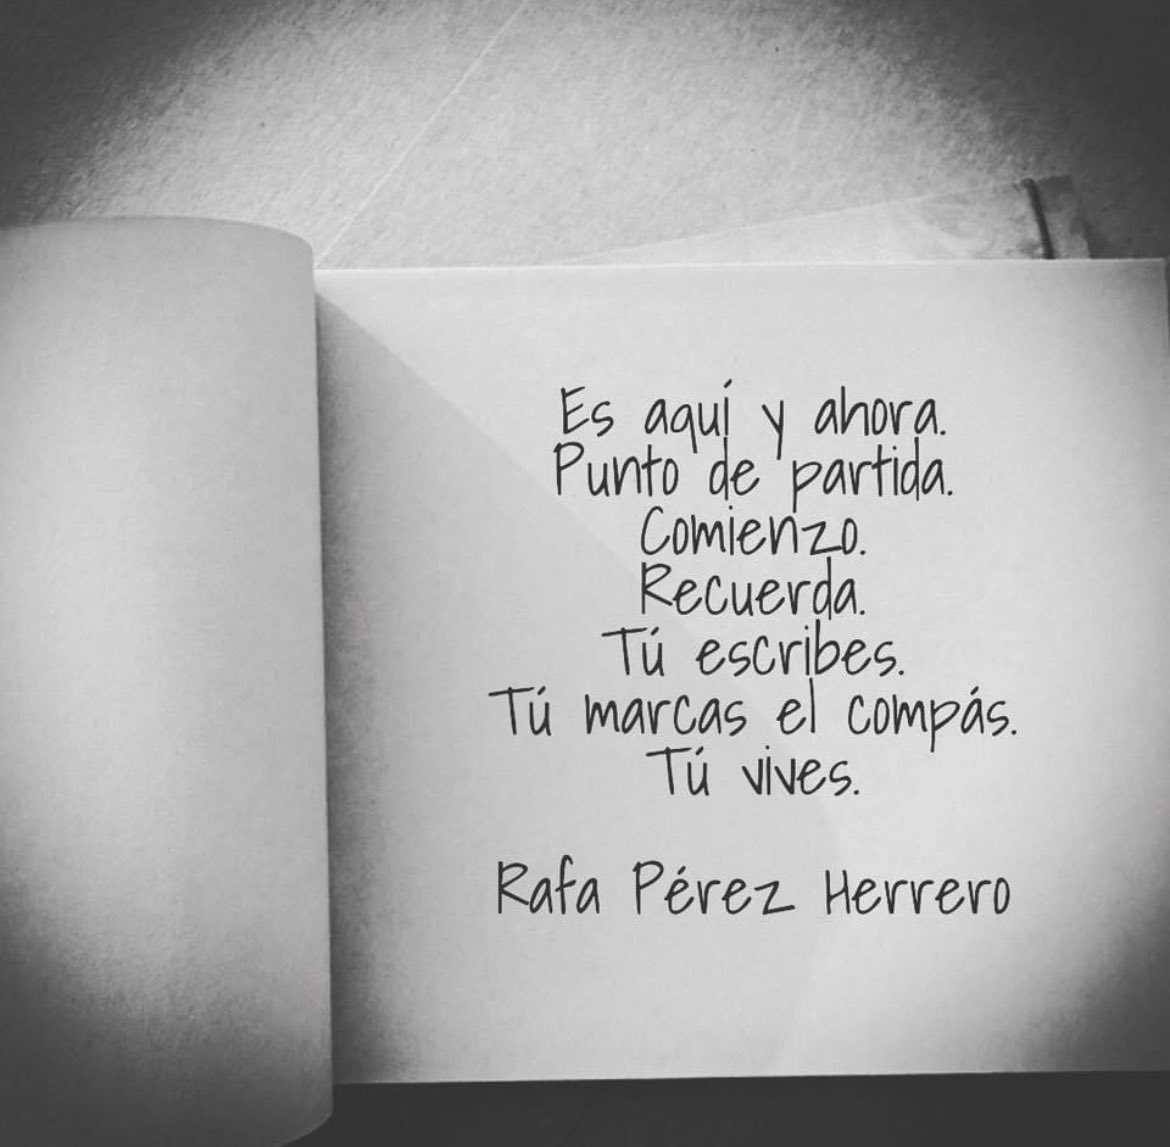 Es aquí y ahora.
Punto de partida.
Comienzo.
Recuerda.
Tú escribes.
Tú marcas el compás.
Tú vives.
Rafa Pérez Herrero